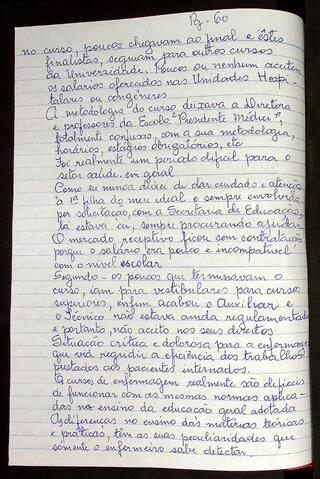 Pg - 60
no curso, poucos chegavam ao final e êstes
finalistas, seguiam para outros cursos
da Universidade. Poucos ou nenhum aceitou
os salários oferecidos nas Unidades Hospi-
talares ou congêneres
A metodologia do curso deixava a Diretora
e professores da Escola "Presidente Médice",
totalmente confusos, com a sua metodologia,
horários, estágios obrigatórios, etc
Foi realmente um período difícil para o
setor saúde em geral
Como eu nunca deixei de dar cuidado e atenção
a 1ª filha do meu ideal e sempre envolvida
por solicitação, com a Secretaria de Educação,
lá estava eu, sempre procurando ajudar
O mercado receptivo ficou sem contratação
porque o salário era pouco e incompatível
com o nível escolar
Segundo - os poucos que terminavam o
curso, iam para vestibulares para cursos
superiores, enfim acabou o Auxiliar e
o Técnico não estava ainda regulamentado
e portanto, não aceito nos seus direitos
Situação crítica e dolorosa para a enfermagem
que viu regredir a eficiência dos trabalhos
prestados aos pacientes internados.
Os cursos de enfermagem realmente são difíceis
de funcionar com as mesmas normas aplica-
das no ensino da educação geral adotada
As diferenças no ensino das matérias teóricas
e práticas, têm as suas peculiaridades que
somente o enfermeiro sabe detectar.